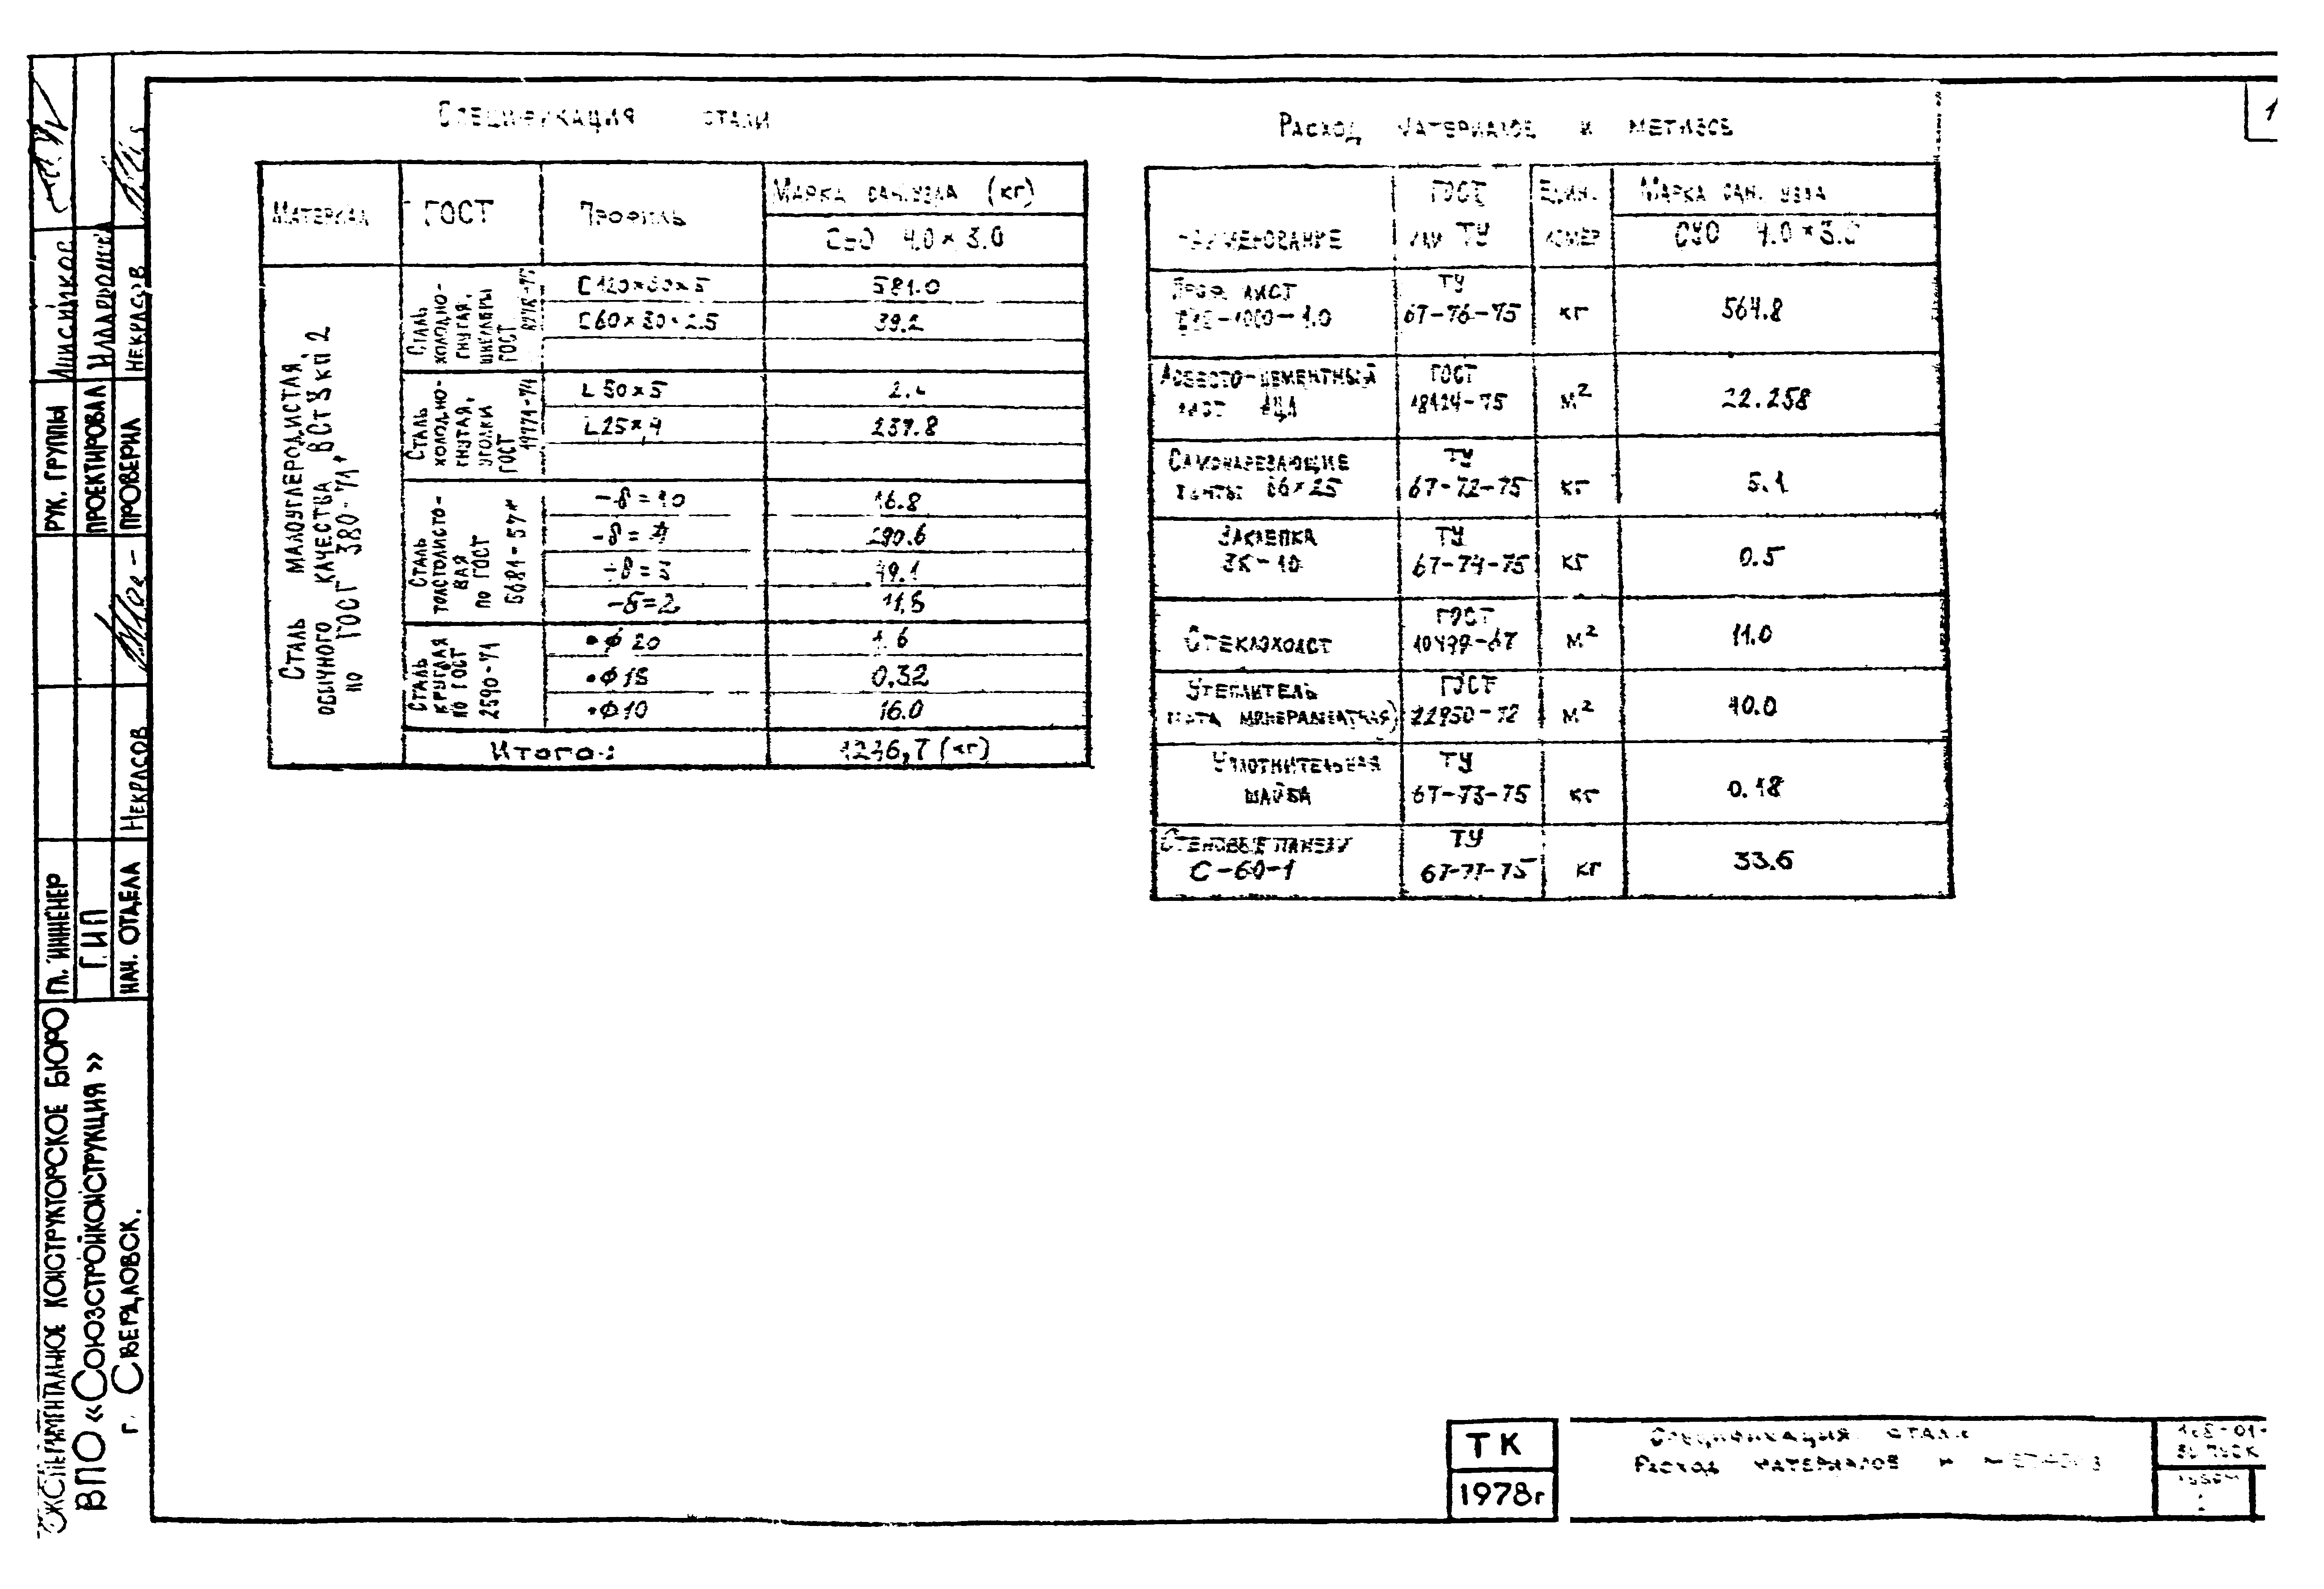 Спецификация стали
Материал
ГОСТ
Профиль
Марка сан.узла (кг)
СУО 4.0×3.0
Сталь малоуглеродистая,
обычного качества ВСт3кп2
по ГОСТ 380-71*
Сталь
холодно-
гнутая,
швеллеры
ГОСТ
С 120×60×5
581.0
С 60×30×2.5
39.2
Сталь
холодно-
гнутая,
уголки
ГОСТ
19771-74
L 50×5
L 25×4
237.8
Сталь
толстолисто-
вая
по ГОСТ
5681-57*
-δ=10
16.8
-δ=4
290.6
-δ=3
49.1
-δ=2
11,5
Сталь
круглая
по ГОСТ
2590-71
•Ф 20
1.6
•Ф 18
0.32
•Ф 10
16.0
Итого:
1246,7 (кг)
Расход материалов и метизов
Наименование
ГОСТ
или ТУ
Един.
измер
Марка сан. узла
СУО 4.0×3.0
Проф. лист
ТУ
67-76-75
кг
564.8
Асбесто-цементный
лист АЦЛ
ГОСТ
18124-75
м²
22.258
Самонарезающие
винты В6×25
ТУ
67-72-75
кг
5.1
Заклепка
ЗК-10
ТУ
67-74-75
кг
0.5
Стеклохолст
ГОСТ
10499-67
м²
11.0
Утеплитель
(плита минераловатная)
ГОСТ
22950-72
м²
40.0
Уплотнительная
шайба
ТУ
67-73-75
кг
0.18
Стеновые панели
С-60-1
ТУ
67-77-75
кг
33.6
1
Рук. группы
Проектировал
Проверил
Некрасов
Гл. инженер
Г.И.П
Нач. отдела
Некрасов
Экспериментальное конструкторское бюро
ВПО «Союзстройконструкция»
г. Свердловск.
ТК
1978г
Спецификация стали
Расход материалов и метизов
Выпуск
Альбом
1